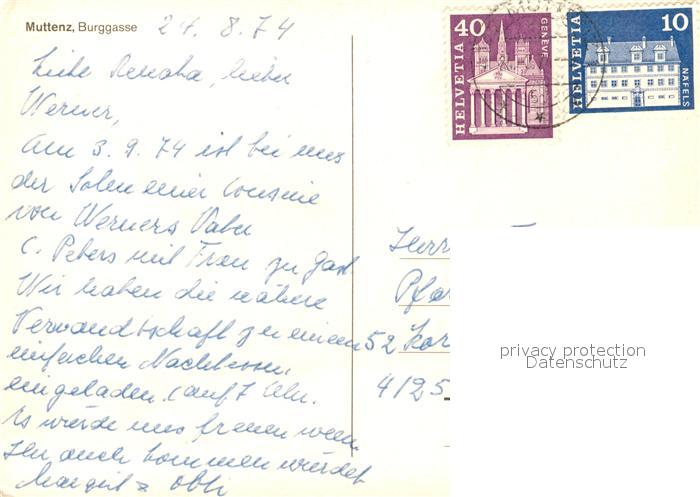 Muttenz, Burggasse
24. 8. 74
Liebe Renata, lieber
Werner,
Am 3. 9. 74 ist bei uns
der Sohn einer Cousine
von Werners Vater
C. Peters mit Frau zu Gast.
Wir haben die nähere
Verwandtschaft zu einem
einfachen Nachtessen
eingeladen (auf 7 Uhr.
Es würde uns freuen wenn
Ihr auch kommen würdet
Margrit
HELVETIA
40
GENÈVE
HELVETIA
10
NÄFELS
Herr
Pfa
52
4125
privacy protection
Datenschutz